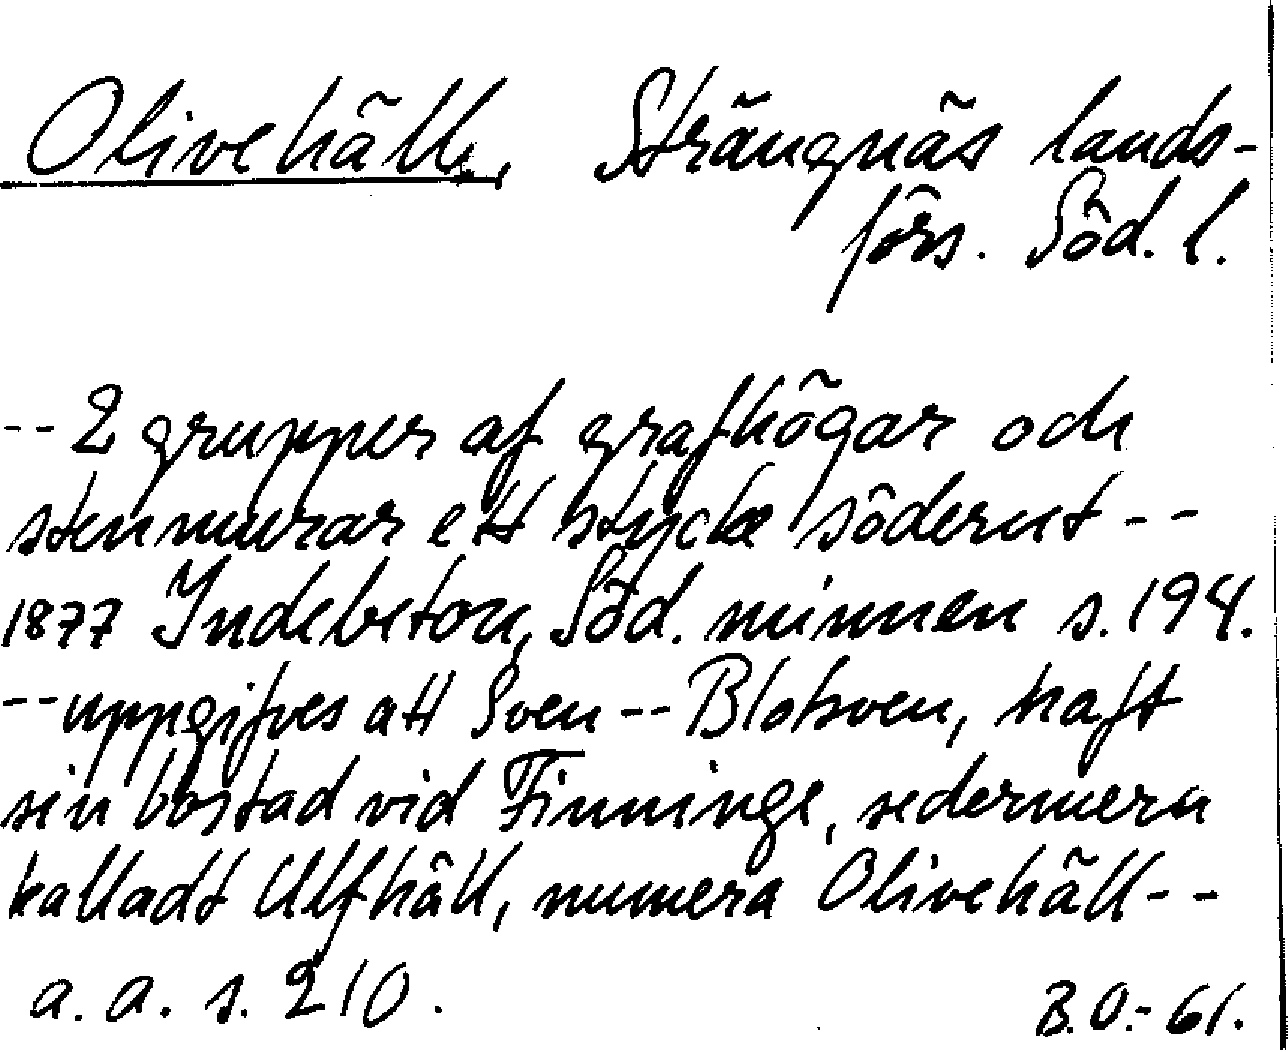 Olivehäll, Strängnäs lands-
förs. Söd. l.
-- 2 grupper af grafhögar och
stenmurar ett stycke söderut --
1877 Indebetou, Söd. minnen s. 194.
-- uppgifves att Sven -- Blotsven, haft
sin bostad vid Finninge, sedermera
kalladt Ulfhäll, numera Olivehäll --
a. a. s. 210.
B.O.-61.